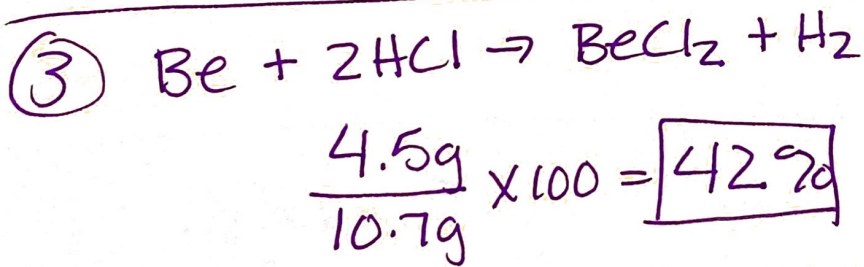 ③ Be + 2HCl → BeCl₂ + H₂
4.5g
10.7g
× 100 = 42%